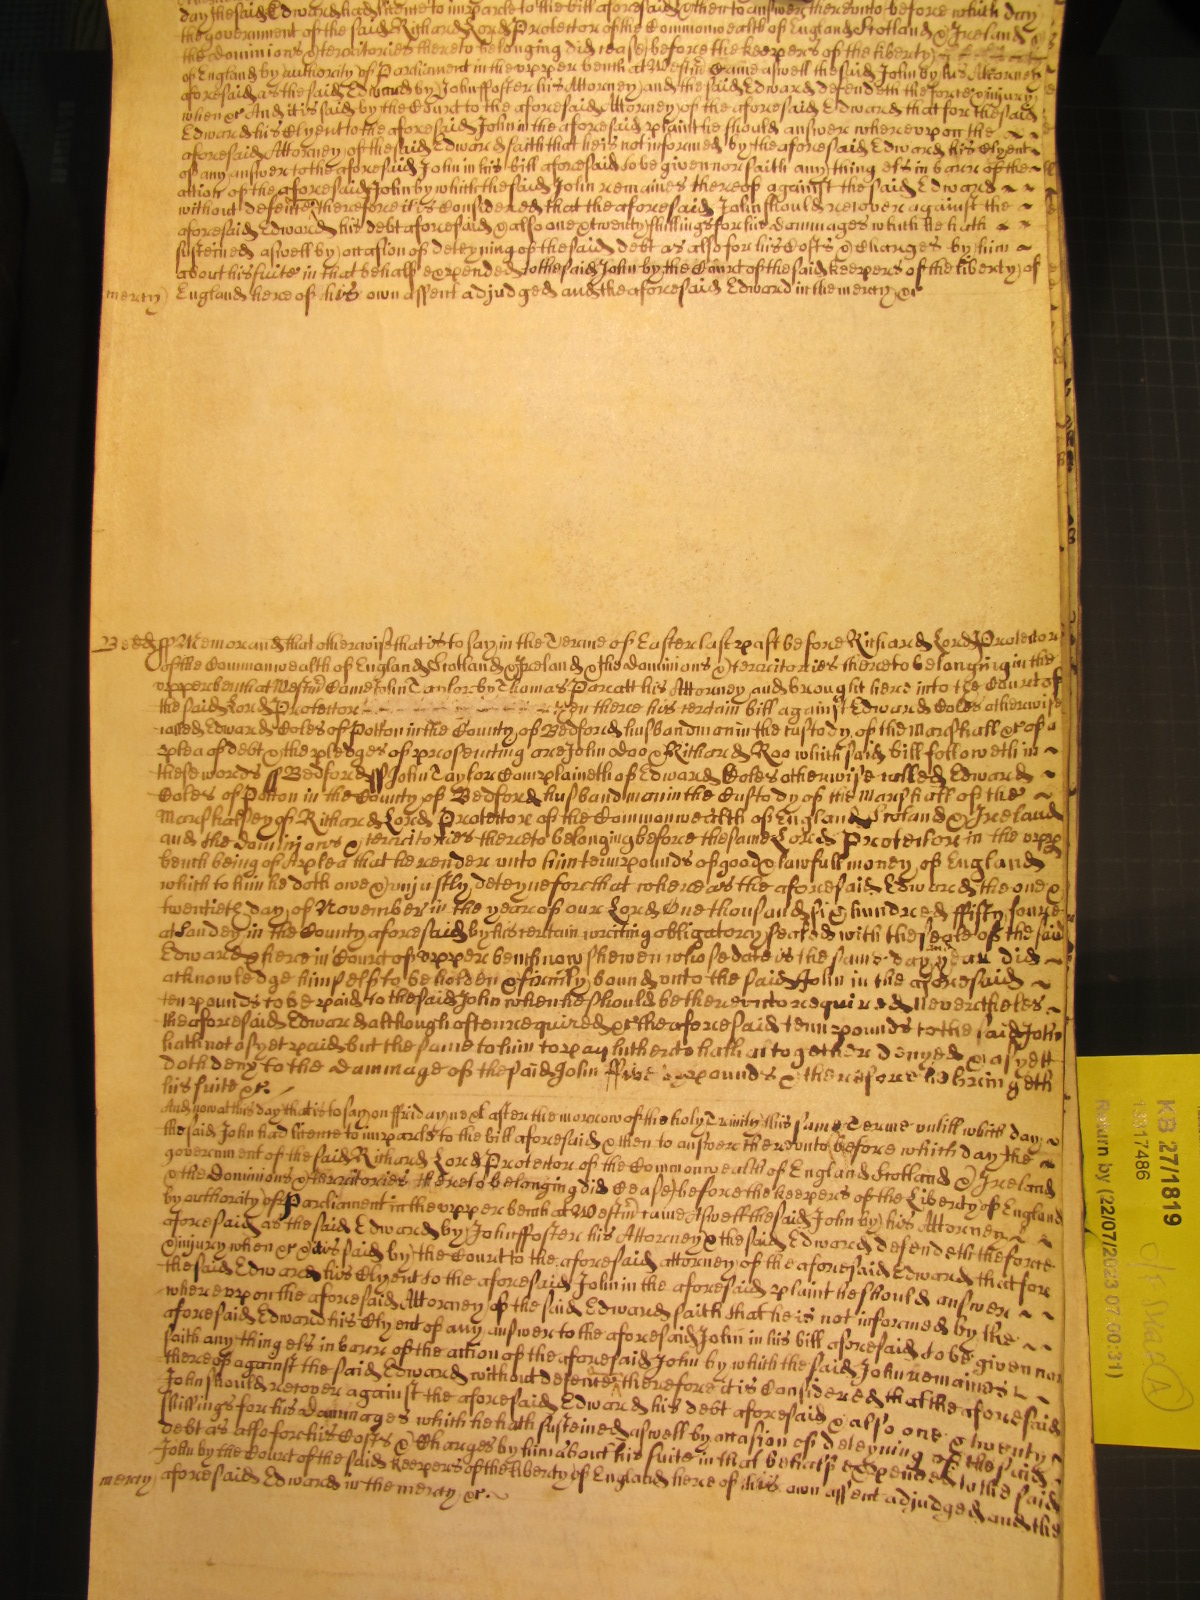 day the said Edward had licence to imparle to the bill aforesaid & then to answer thereunto before which day
the government of the said Richard Lord Protector of the Commonwealth of England Scotland & Ireland &
the dominions & territories thereto belonging did cease before the keepers of the liberty
of England by authority of Parliament in the upper bench at Westm Came aswell the said John by his Attorney
aforesaid as the said Edward by John ffoster his Attorney and the said Edward defendeth the force & injury
when &c And it is said by the Court to the aforesaid Attorney of the aforesaid Edward that for the said
Edward his Clyent to the aforesaid John in the aforesaid plaint he should answer whereupon the
aforesaid Attorney of the said Edward saith that he is not informed by the aforesaid Edward his Clyent
of any answer to the aforesaid John in his bill aforesaid to be given nor saith any thing els in barr of the
action of the aforesaid John by which the said John remaines thereof against the said Edward
without defence therefore it is Considered that the aforesaid John should recover against the
aforesaid Edward his debt aforesaid & also one & twenty shillings for his dammages which he hath
susteined aswell by occasion of deteyning of the said debt as also for his Costs & Charges by him
about his suite in that behalf expended to the said John by the Court of the said keepers of the liberty of
mercy England here of his own assent adjudged and the aforesaid Edward in the mercy &c
Bedd ss Memorand that otherwise that is to say in the Terme of Easter last past before Richard Lord Protector
of the Commonwealth of England Scotland & Ireland & the dominions & territories thereto belonging in the
upper bench at Westm Came John Taylor by Thomas Paratt his Attorney and brought here into the Court of
the said Lord Protector then there his certain bill against Edward Coles otherwise
called Edward Coles of Potton in the County of Bedford husbandman in the custody of the Marshall &c of a
plea of debt & the pledges of prosecuting are John Doo & Richard Roo which said bill followeth in
these words ss Bedford ss John Taylor Complaineth of Edward Coles otherwise called Edward
Coles of Potton in the County of Bedford husbandman in the Custody of the Marshall of the
Marshalsey of Richard Lord Protector of the Commonwealth of England Scotland & Ireland
and the dominions & territories thereto belonging before the same Lord Protector in the upp
bench being of A plea that he render unto him tenn pounds of good & lawfull money of England
which to him he doth owe & unjustly deteyne for that whereas the aforesaid Edward the one &
twentieth day of November in the year of our Lord One thousand six hundred ffifty foure
at Sandey in the County aforesaid by his certain writing obligatory sealed with the seale of the said
Edward & here in Court of upper bench now shewen whose date is the same day & year did
acknowledge himself to be holden & firmly bound unto the said John in the aforesaid
ten pounds to be paid to the said John when he should be thereunto required Nevertheles
the aforesaid Edward although often required &c the aforesaid tenn pounds to the said John
hath not as yet paid but the same to him to pay hitherto hath altogether denyed & as yett
doth deny to the dammage of the said John ffive pounds & therefore he bringeth
his suite &c
And now at this day that is to say on ffriday next after the morrow of the holy Trinity this same Terme untill which day
the said John had licence to imparle to the bill aforesaid & then to answer thereunto before which day the
government of the said Richard Lord Protector of the Commonwealth of England Scotland & Ireland
& the Dominions & territories thereto belonging did Cease before the keepers of the Liberty of England
by authority of Parliament in the upper bench at Westm came Aswell the said John by his Attorney
aforesaid as the said Edward by John ffoster his Attorney & the said Edward defendeth the force
& injury when &c & it is said by the Court to the aforesaid attorney of the aforesaid Edward that for
the said Edward his Clyent to the aforesaid John in the aforesaid plaint he should answer
whereupon the aforesaid Attorney of the said Edward saith that he is not informed by the
aforesaid Edward his Clyent of any answer to the aforesaid John in his bill aforesaid to be given nor
saith any thing els in barr of the action of the aforesaid John by which the said John remaines
thereof against the said Edward without defence therefore it is Considered that the aforesaid
John should recover against the aforesaid Edward his debt aforesaid & also one & twenty
shillings for his dammages which he hath susteined aswell by occasion of deteyning of the said
debt as also for his Costs & Charges by him about his suite in that behalf expended to the said
John by the Court of the said keepers of the liberty of England here of his own assent adjudged and the
mercy aforesaid Edward in the mercy &c.
KB 27/1819
13317486
Return by (22/07/2023 07:00:31)